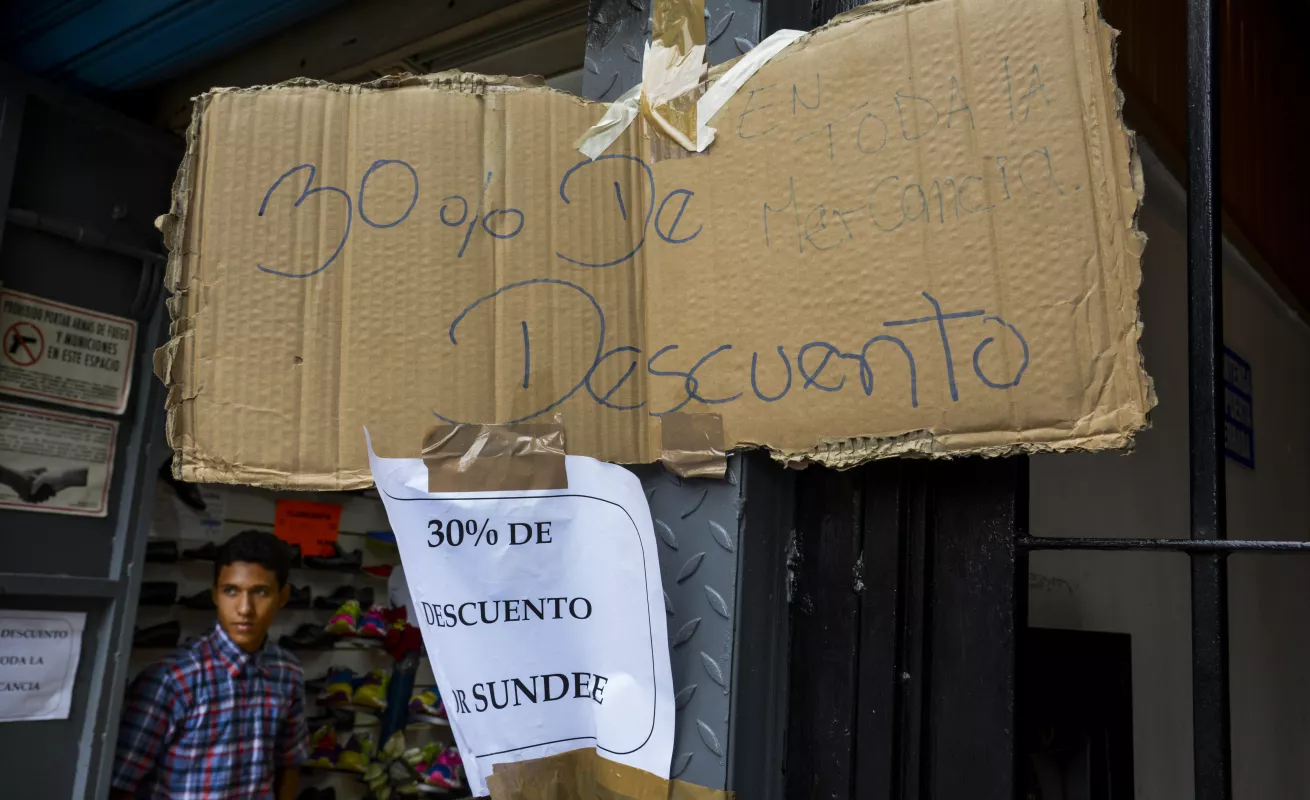 30% De
Descuento
EN TODA lA
MerCancia.
30% DE
DESCUENTO
OR SUNDEE
PROHIBIDO PORTAR ARMAS DE FUEGO
Y MUNICIONES
EN ESTE ESPACIO
DESCUENTO
TODA LA
CANCIA